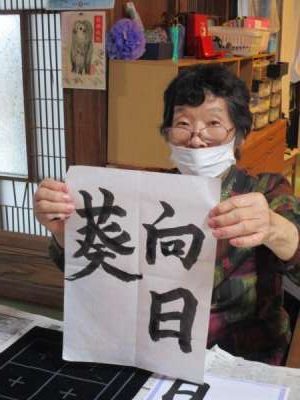 向日
葵